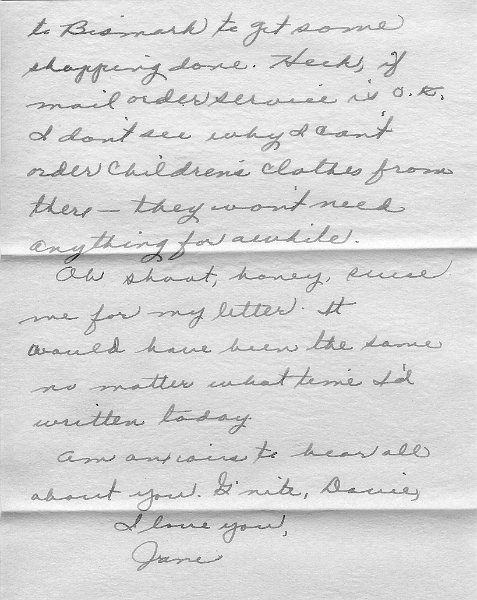 to Bismark to get some
shopping done. Heck, if
mail order service is o.k.
I don't see why I can't
order children's clothes from
there — they won't need
anything for awhile.
Oh shoot, honey, scuse
me for my letter. It
would have been the same
no matter what time I'd
written today
Am anxious to hear all
about you. G'nite, Davie,
I love you,
Jane